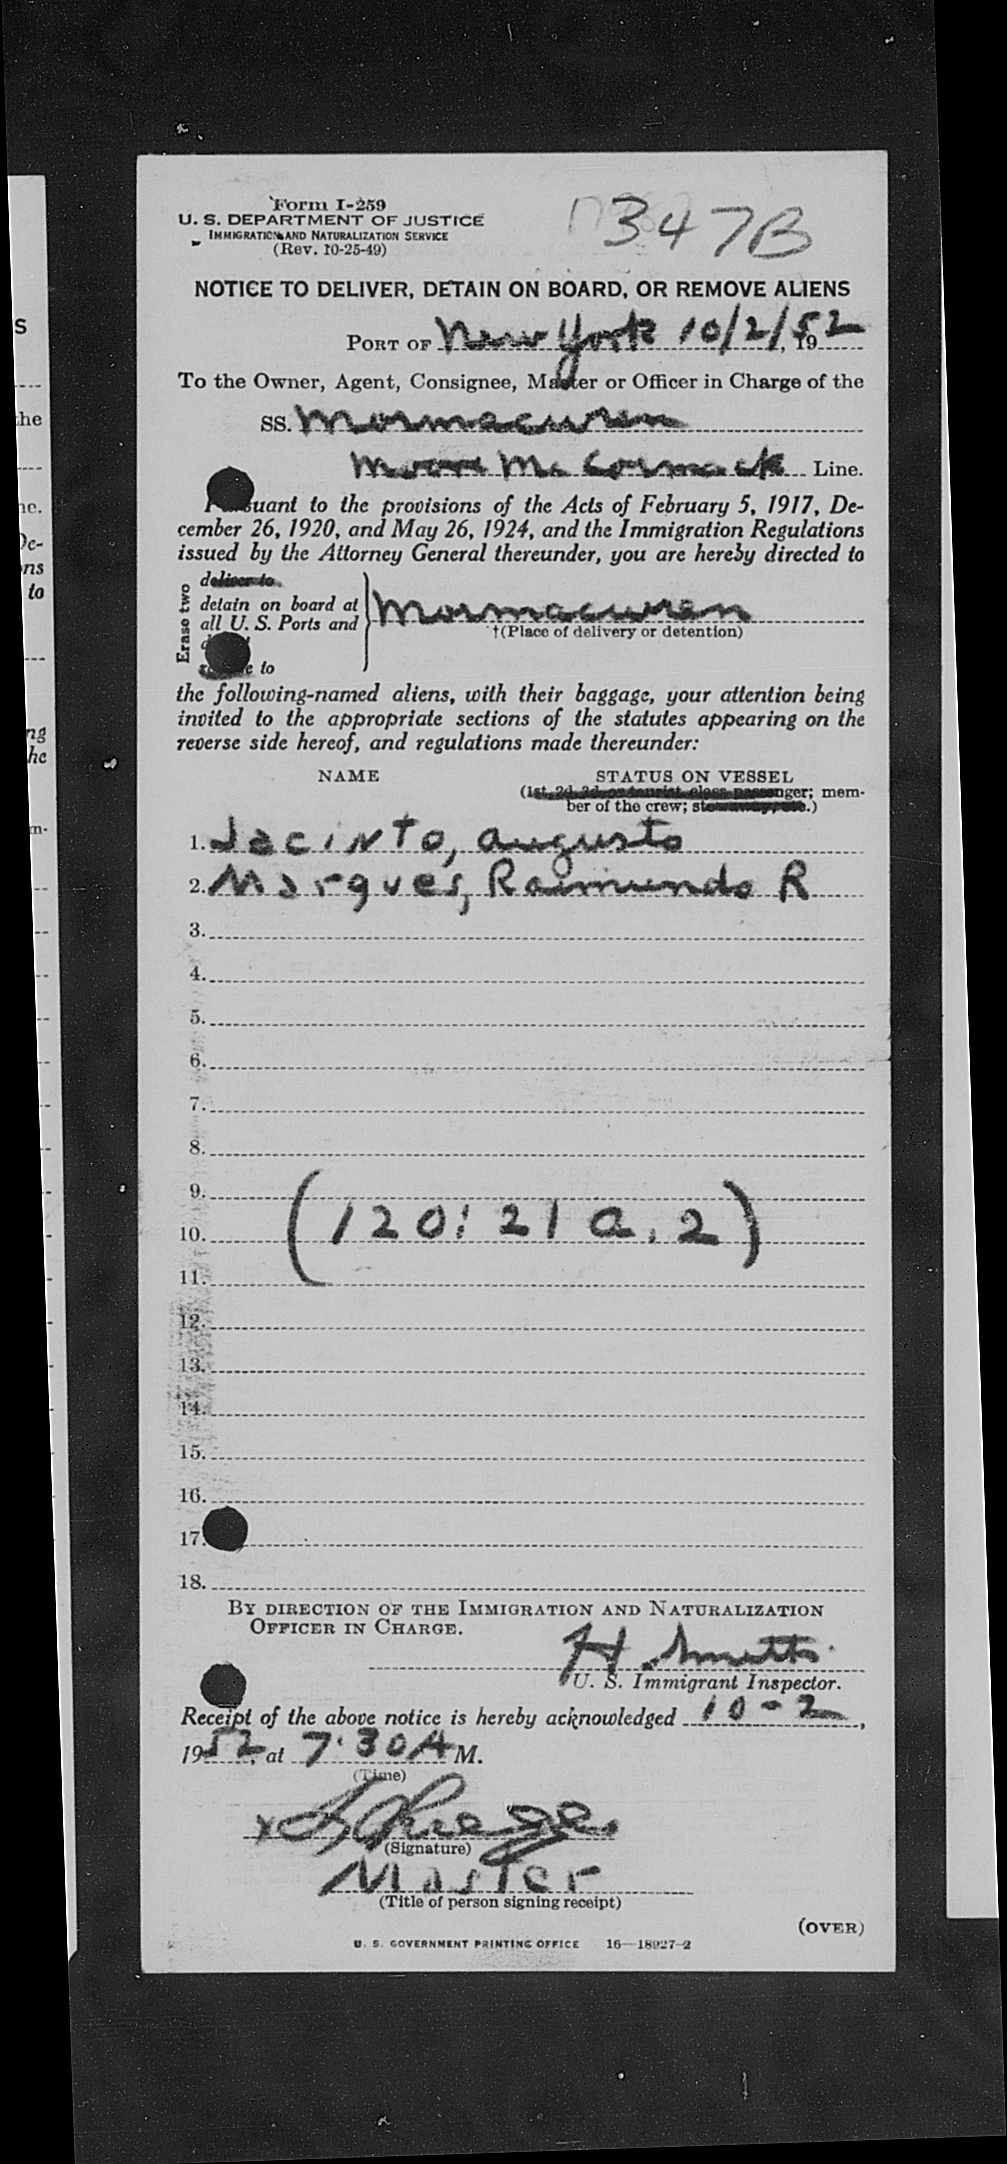 Form I-259
U. S. DEPARTMENT OF JUSTICE
IMMIGRATION AND NATURALIZATION SERVICE
(Rev. 10-25-49)
347B
NOTICE TO DELIVER, DETAIN ON BOARD, OR REMOVE ALIENS
PORT OF New York 10/2/, 1952
To the Owner, Agent, Consignee, Master or Officer in Charge of the
SS. Mormacwren
Moore McCormack Line.
Pursuant to the provisions of the Acts of February 5, 1917, De-
cember 26, 1920, and May 26, 1924, and the Immigration Regulations
issued by the Attorney General thereunder, you are hereby directed to
Erase two
deliver to
detain on board at
all U. S. Ports and
to
Mormacwren
†(Place of delivery or detention)
the following-named aliens, with their baggage, your attention being
invited to the appropriate sections of the statutes appearing on the
reverse side hereof, and regulations made thereunder:
NAME STATUS ON VESSEL
(1st, 2d, 3d, or tourist class passenger; mem-
ber of the crew; stowaway, etc.)
1. Jacinto, Augusto
2. Marques, Raimundo R
3.
4.
5.
6.
7.
8.
9.
10. (120: 21 a. 2)
11.
12.
13.
14.
15.
16.
17.
18.
BY DIRECTION OF THE IMMIGRATION AND NATURALIZATION
OFFICER IN CHARGE.
H.
U. S. Immigrant Inspector.
Receipt of the above notice is hereby acknowledged 10-2,
1952, at 7:30 A M.
(Time)
x
(Signature)
Master
(Title of person signing receipt)
(OVER)
U. S. GOVERNMENT PRINTING OFFICE 16—18927-2